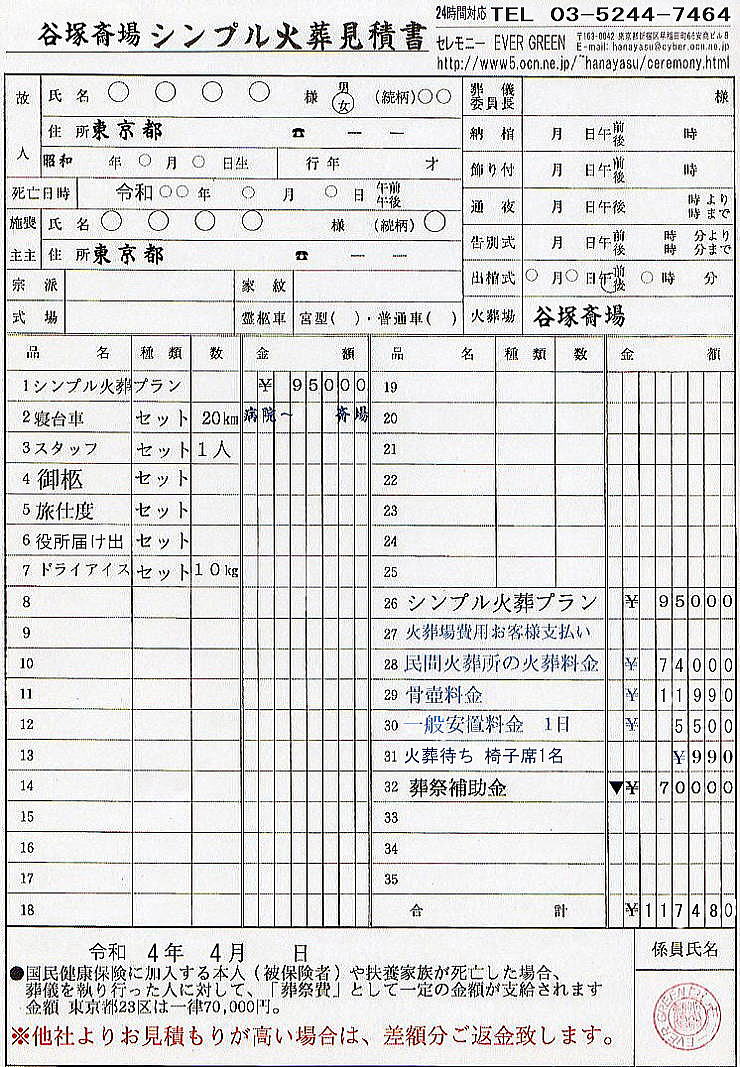 谷塚斎場 シンプル火葬見積書
24時間対応 TEL 03-5244-7464
セレモニー EVER GREEN 〒163-0042 東京都新宿区早稲田町66安商ビル8
E-mail: hanayasu@cyber.ocn.ne.jp
http://www5.ocn.ne.jp/~hanayasu/ceremony.html
故人
氏 名 〇 〇 〇 〇 様 男 女 (続柄)〇〇
住 所 東京都 ☎ ― ―
昭和 年 〇 月 〇 日生 行年 才
死亡日時 令和 〇〇 年 〇 月 〇 日 午前 午後
施主 喪主
氏 名 〇 〇 〇 〇 様 (続柄) 〇
住 所 東京都 ☎ ― ―
宗 派 家 紋
式 場 霊柩車 宮型( )・普通車( )
葬儀委員長 様
納 棺 月 日午前後 時
飾り付 月 日午前後 時
通 夜 月 日午後 時より 時まで
告別式 月 日午前後 時 分より 時 分まで
出棺式 〇 月〇 日午前後 〇時 分
火葬場 谷塚斎場
品 名 種 類 数 金 額
1 シンプル火葬プラン ¥ 95000
2 寝台車 セット 20km 病院~ 斎場
3 スタッフ セット 1人
4 御柩 セット
5 旅仕度 セット
6 役所届け出 セット
7 ドライアイス セット 10kg
8
9
10
11
12
13
14
15
16
17
18
品 名 種 類 数 金 額
19
20
21
22
23
24
25
26 シンプル火葬プラン ¥ 95000
27 火葬場費用お客様支払い
28 民間火葬所の火葬料金 ¥ 74000
29 骨壺料金 ¥ 11990
30 一般安置料金 1日 ¥ 5500
31 火葬待ち 椅子席1名 ¥990
32 葬祭補助金 ▼¥ 70000
33
34
35
合 計 ¥117480
令和 4年 4月 日
●国民健康保険に加入する本人(被保険者)や扶養家族が死亡した場合、
葬儀を執り行った人に対して、「葬祭費」として一定の金額が支給されます
金額 東京都23区は一律70,000円。
※他社よりお見積もりが高い場合は、差額分ご返金致します。
係員氏名
EVER GREEN